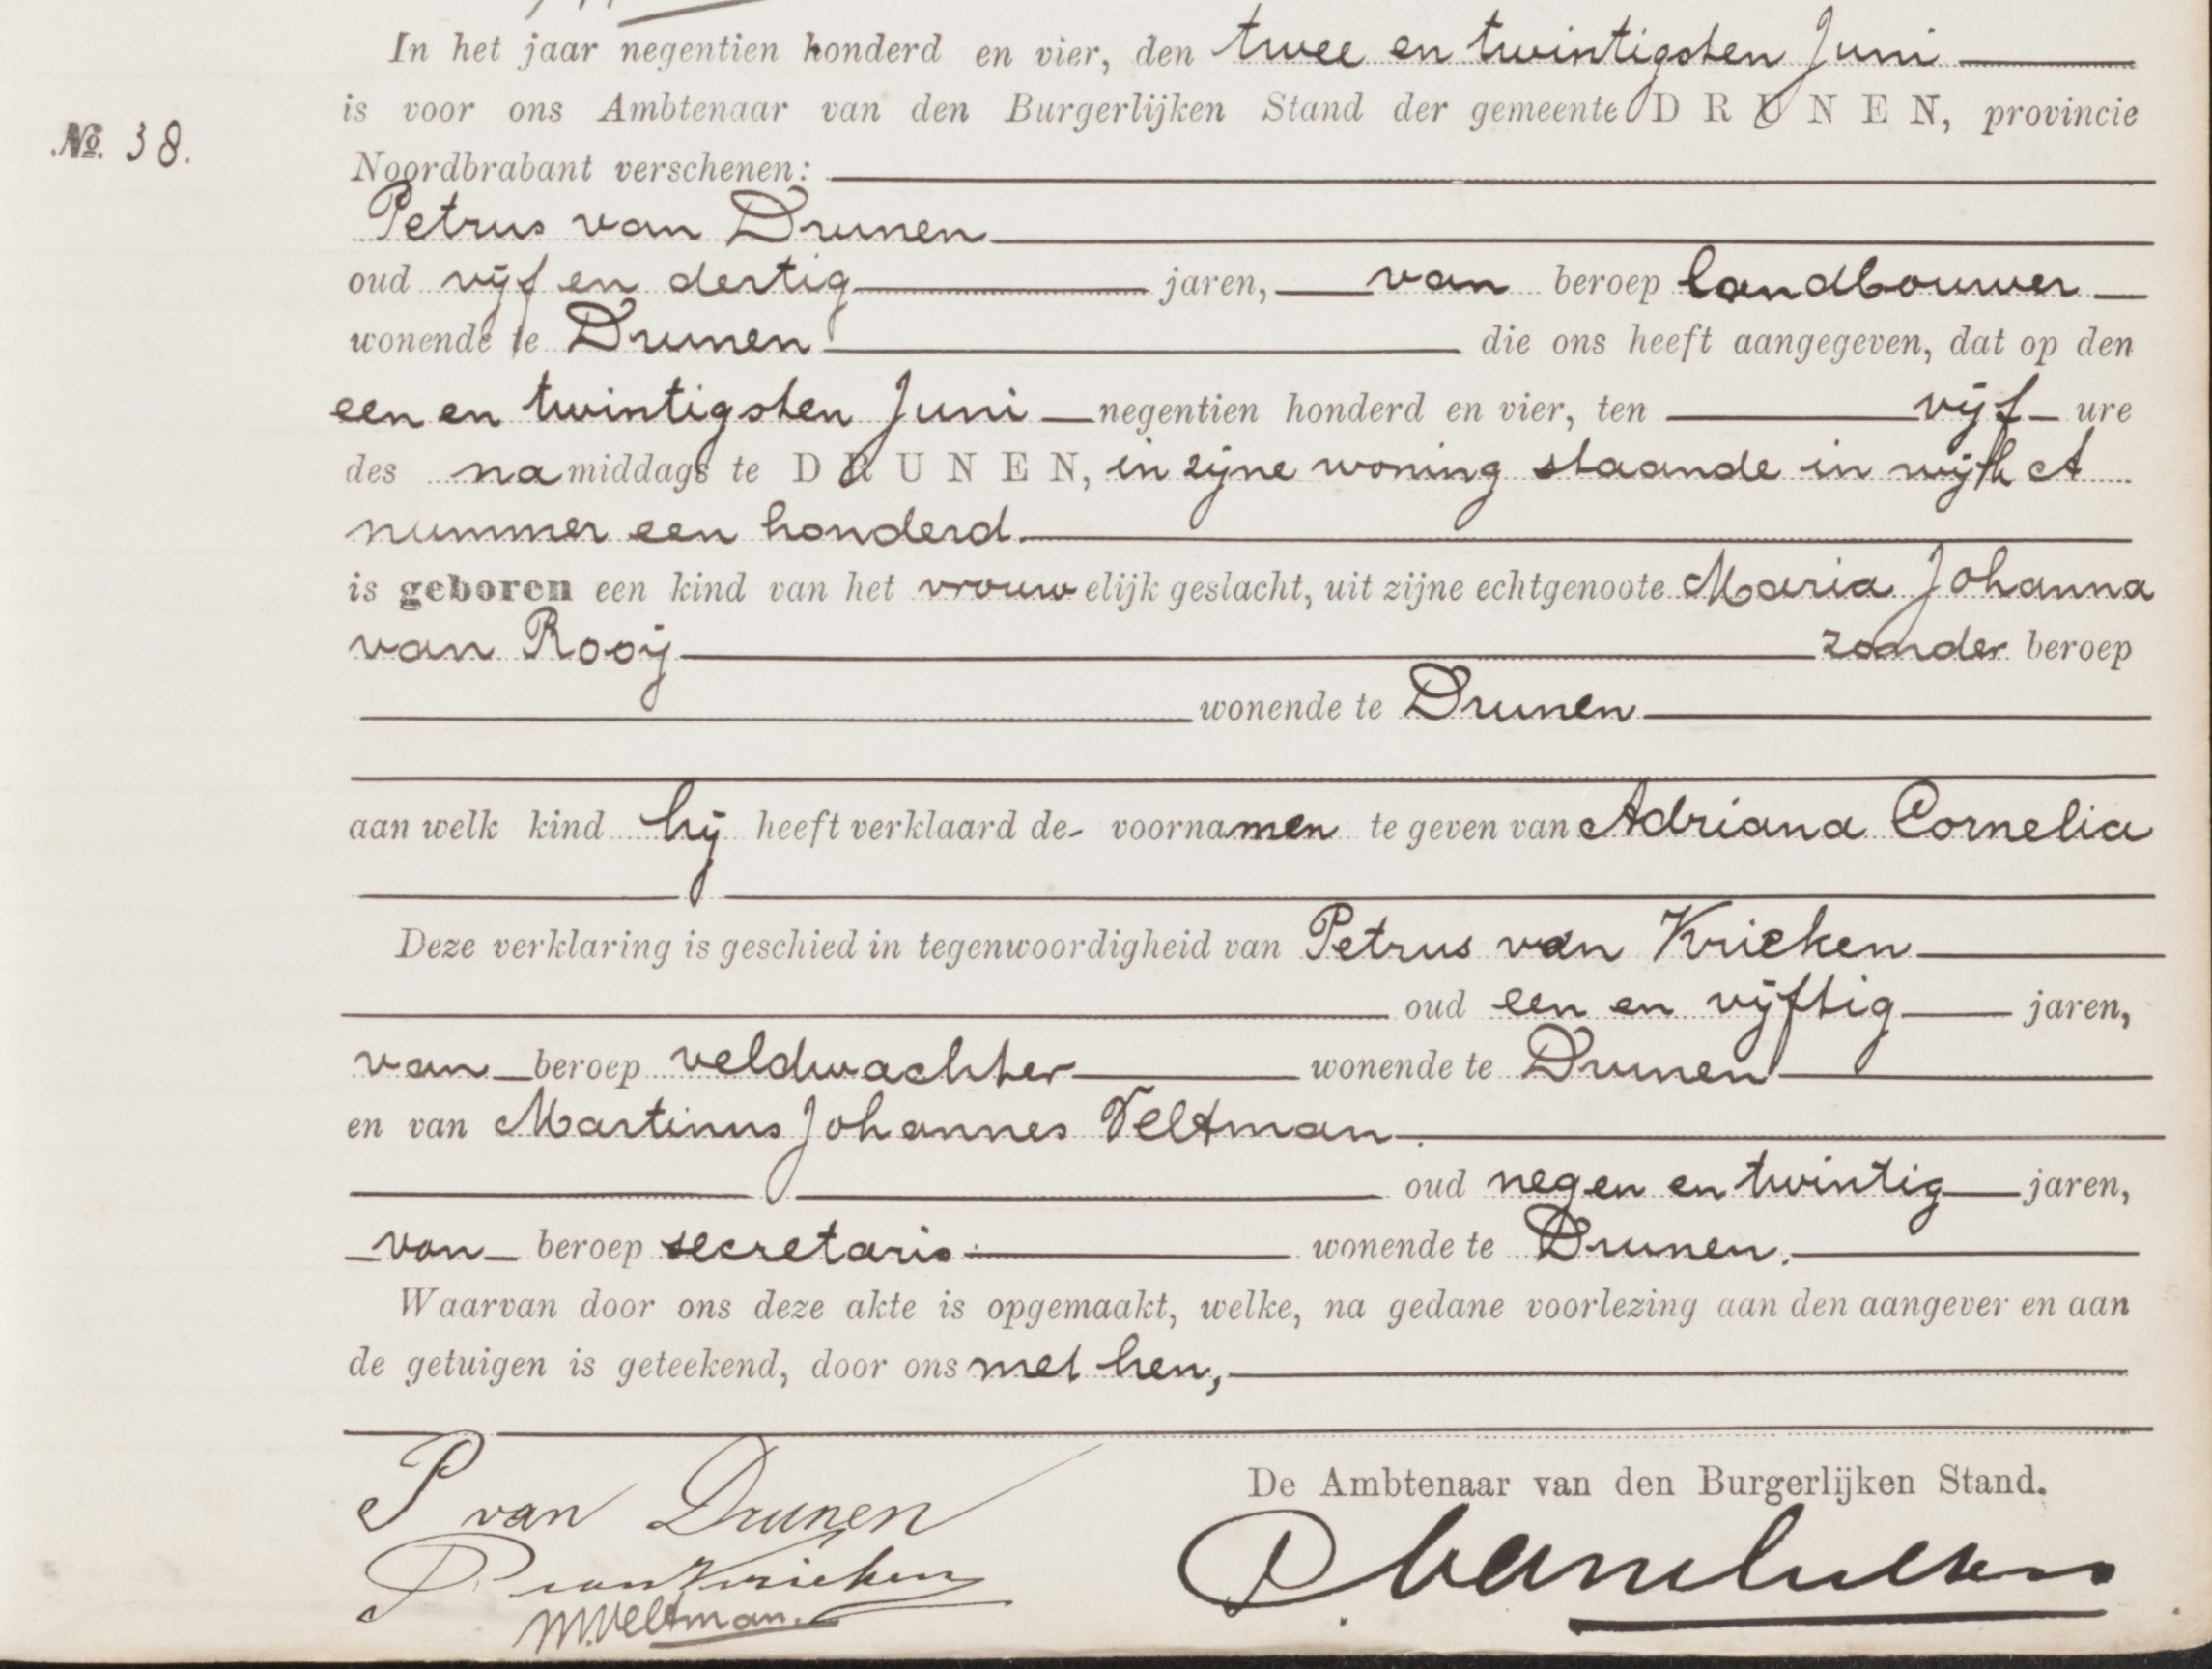 In het jaar negentien honderd en vier, den twee en twintigsten Juni
is voor ons Ambtenaar van den Burgerlijken Stand der gemeente DRUNEN, provincie
No. 38.
Noordbrabant verschenen:
Petrus van Drunen
oud vijf en dertig jaren, van beroep landbouwer
wonende te Drunen die ons heeft aangegeven, dat op den
een en twintigsten Juni negentien honderd en vier, ten vijf ure
des namiddags te DRUNEN, in zijne woning staande in wijk A
nummer een honderd.
is geboren een kind van het vrouwelijk geslacht, uit zijne echtgenoote Maria Johanna
van Rooij zonder beroep
wonende te Drunen
aan welk kind hij heeft verklaard de voornamen te geven van Adriana Cornelia
Deze verklaring is geschied in tegenwoordigheid van Petrus van Kricken
oud een en vijftig jaren,
van beroep veldwachter wonende te Drunen
en van Martinus Johannes Veltman.
oud negen en twintig jaren,
van beroep secretaris wonende te Drunen.
Waarvan door ons deze akte is opgemaakt, welke, na gedane voorlezing aan den aangever en aan
de getuigen is geteekend, door ons met hen,
De Ambtenaar van den Burgerlijken Stand.
P van Drunen
P van Kricken
M. Veltman.